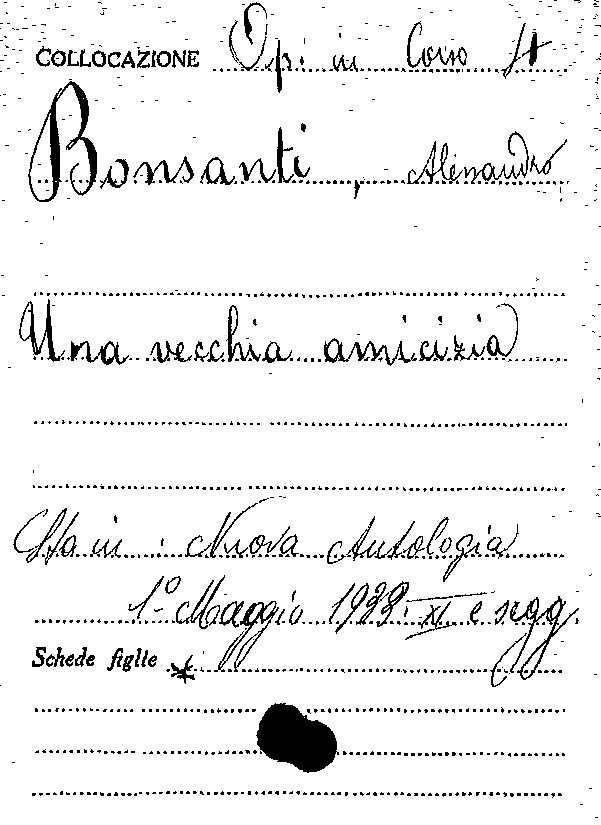 COLLOCAZIONE Op. in Corso St
Bonsanti, Alessandro
Una vecchia amicizia
Sta in : Nuova Antologia
1º Maggio 1933. XI. e segg.
Schede figlie *